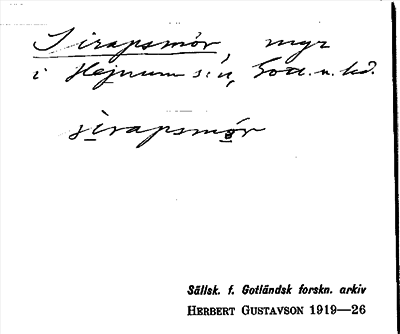 Sirapsmór, myr
i Hejnum s:n, Gotl. n. hd.
sirapsmór
Sällsk. f. Gotländsk forskn. arkiv
HERBERT GUSTAVSON 1919—26